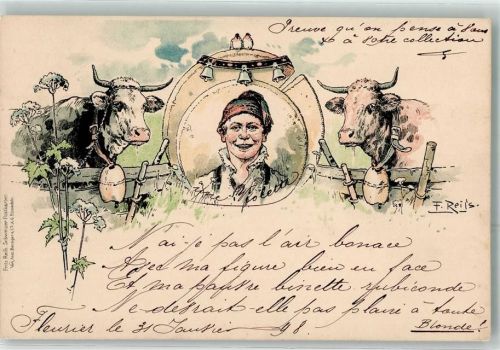 Preuve qu'on pense à vous
et à votre collection
F. Reiss.
N'ai-je pas l'air bonace
Avec ma figure bien en face
Et ma pauvre binette rubiconde
Ne devrait elle pas plaire à toute
Blonde!
Fleurier le 31 Janvier 98.